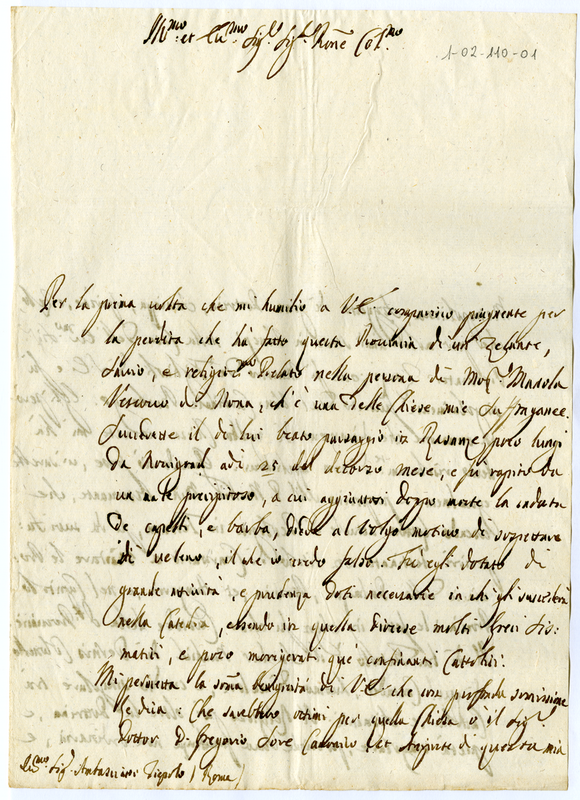 Ill.mo et Ecc.mo Sig.r Sig.r P͠rone Col.mo
1-02-110-01
Per la prima uolta che mi humilio a V.E. comparisco piangente per
la perdita che hà fatto questa Prouincia di un Zelante,
sauio, e religios.mo Prelato nella persona di Mons.r
Vescouo di Nona, ch'è una delle Chiese mie suffraganee.
il di lui beato passaggio in Rasanze poco lungi
da Nouigrad adi 25 del decorso mese, e fù rapito da
un male precipitoso, a cui aggiuntasi doppo morte la caduta
de capelli, e barba, diede al uolgo motiuo di sospettare
di ueleno, il che io credo falso. Fù egli dotato di
grande attiuità, e prudenza doti necessarie in chi gli succederà
nella Catedra, essendo in quella diocese molti Greci Sis:
matici, e poco morigerati que' confinanti Cattolici.
Mi permetta la somma benignità di V.E. che con profonda sommissione
le dica: Che sarebbero ottimi per quella Chiesa ò il Sig.r
Dottor D. Gregorio Canonico di questa mia
Ecc.mo Sig.r Ambasciator Tiepolo (Roma)